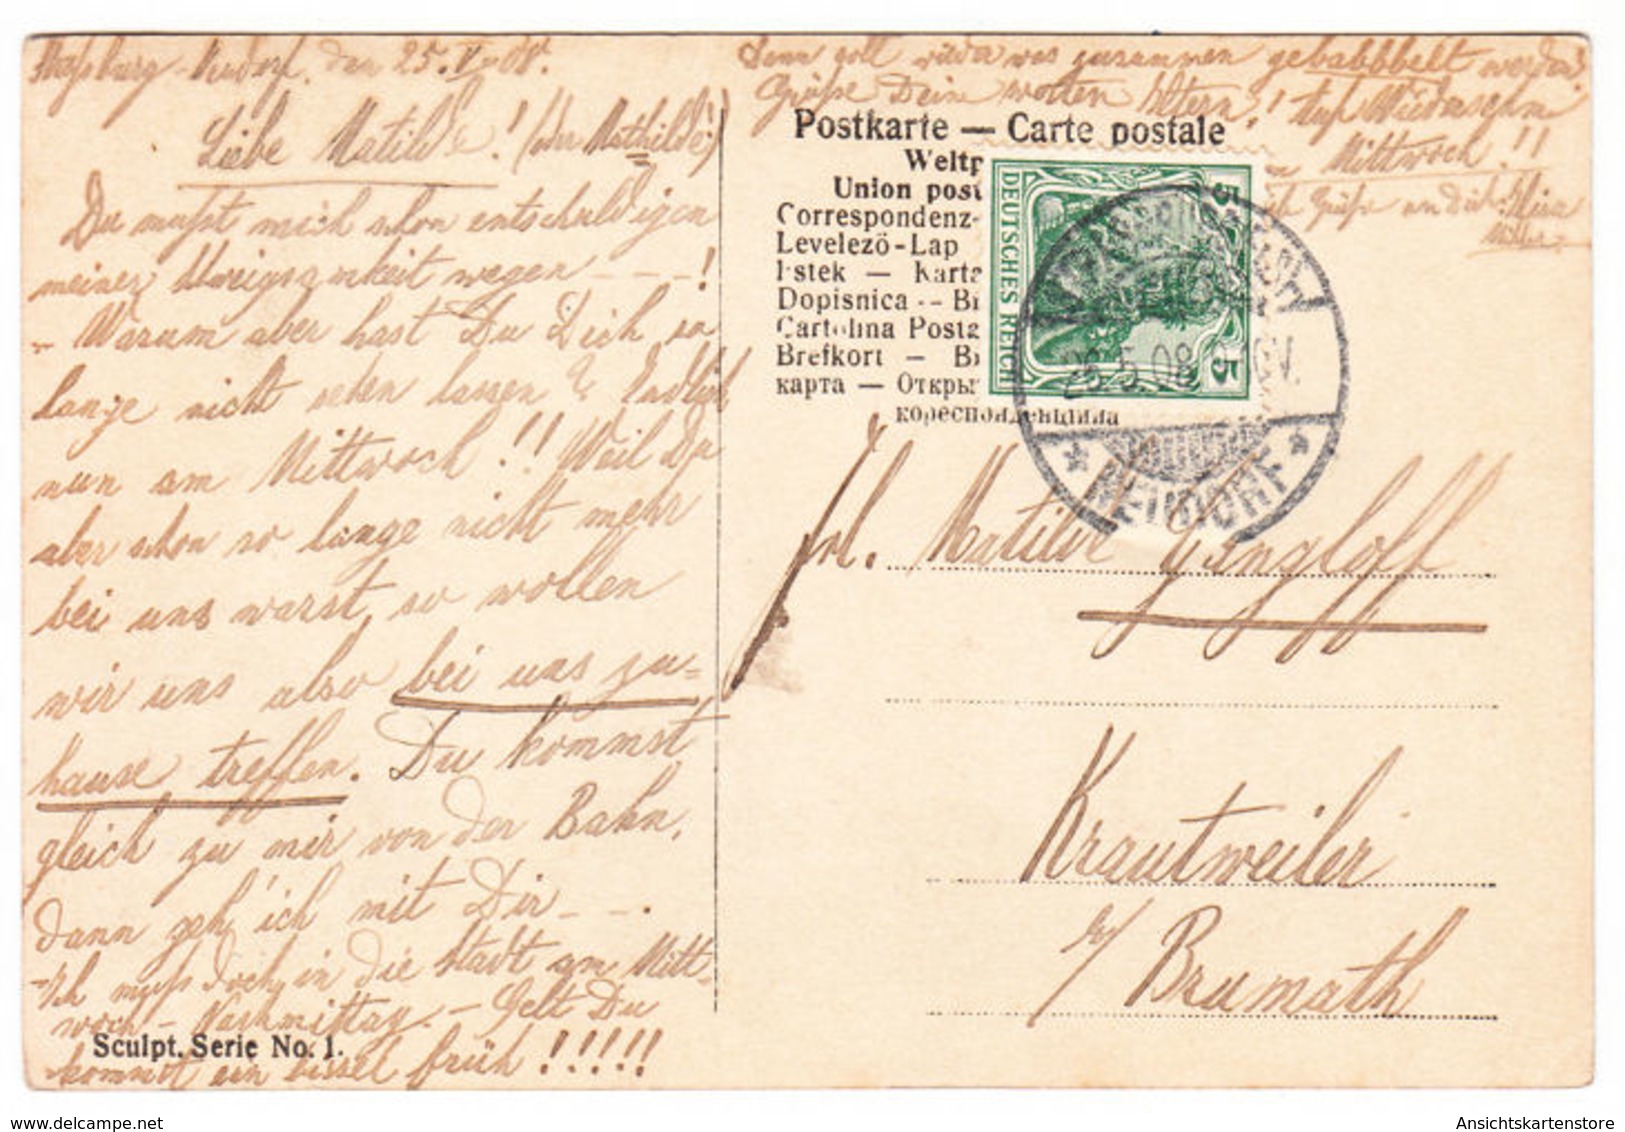 Straßburg-Neudorf, den 25. V. 08.
Liebe Matilde! (oder Mathilde)
Du mußt mich schon entschuldigen
meiner Schweigsamkeit wegen - - - !
- Warum aber hast Du Dich so
lange nicht sehen lassen? Endlich
nun am Mittwoch!! Weil Du
aber schon so lange nicht mehr
bei uns warst, so wollen
wir uns also bei uns zu=
hause treffen. Du kommst
gleich zu mir von der Bahn,
dann geh' ich mit Dir - - -.
-Ich muß doch in die Stadt am Mitt-
woch-Nachmittag. - Gelt Du
kommst ein bissel früh!!!!!
Sculpt. Serie No. 1.
Dann soll wieder was zusammen gebabbbelt werden!
Grüße Deine werten Eltern! Auf Wiedersehn
Mittwoch!!
Grüße an dich
Postkarte — Carte postale
Weltp
Union post
Correspondenz-
Levelező-Lap
Karta
Dopisnica -- Br
Cartolina Posta
Brefkort — Br
карта — Откры
кореспонденцина
DEUTSCHES REICH
5 5
26.5.08
* NEUDORF *
Frl. Matilde Gingloff
Krautweiler
b/ Brumath
Ansichtskartenstore
www.delcampe.net